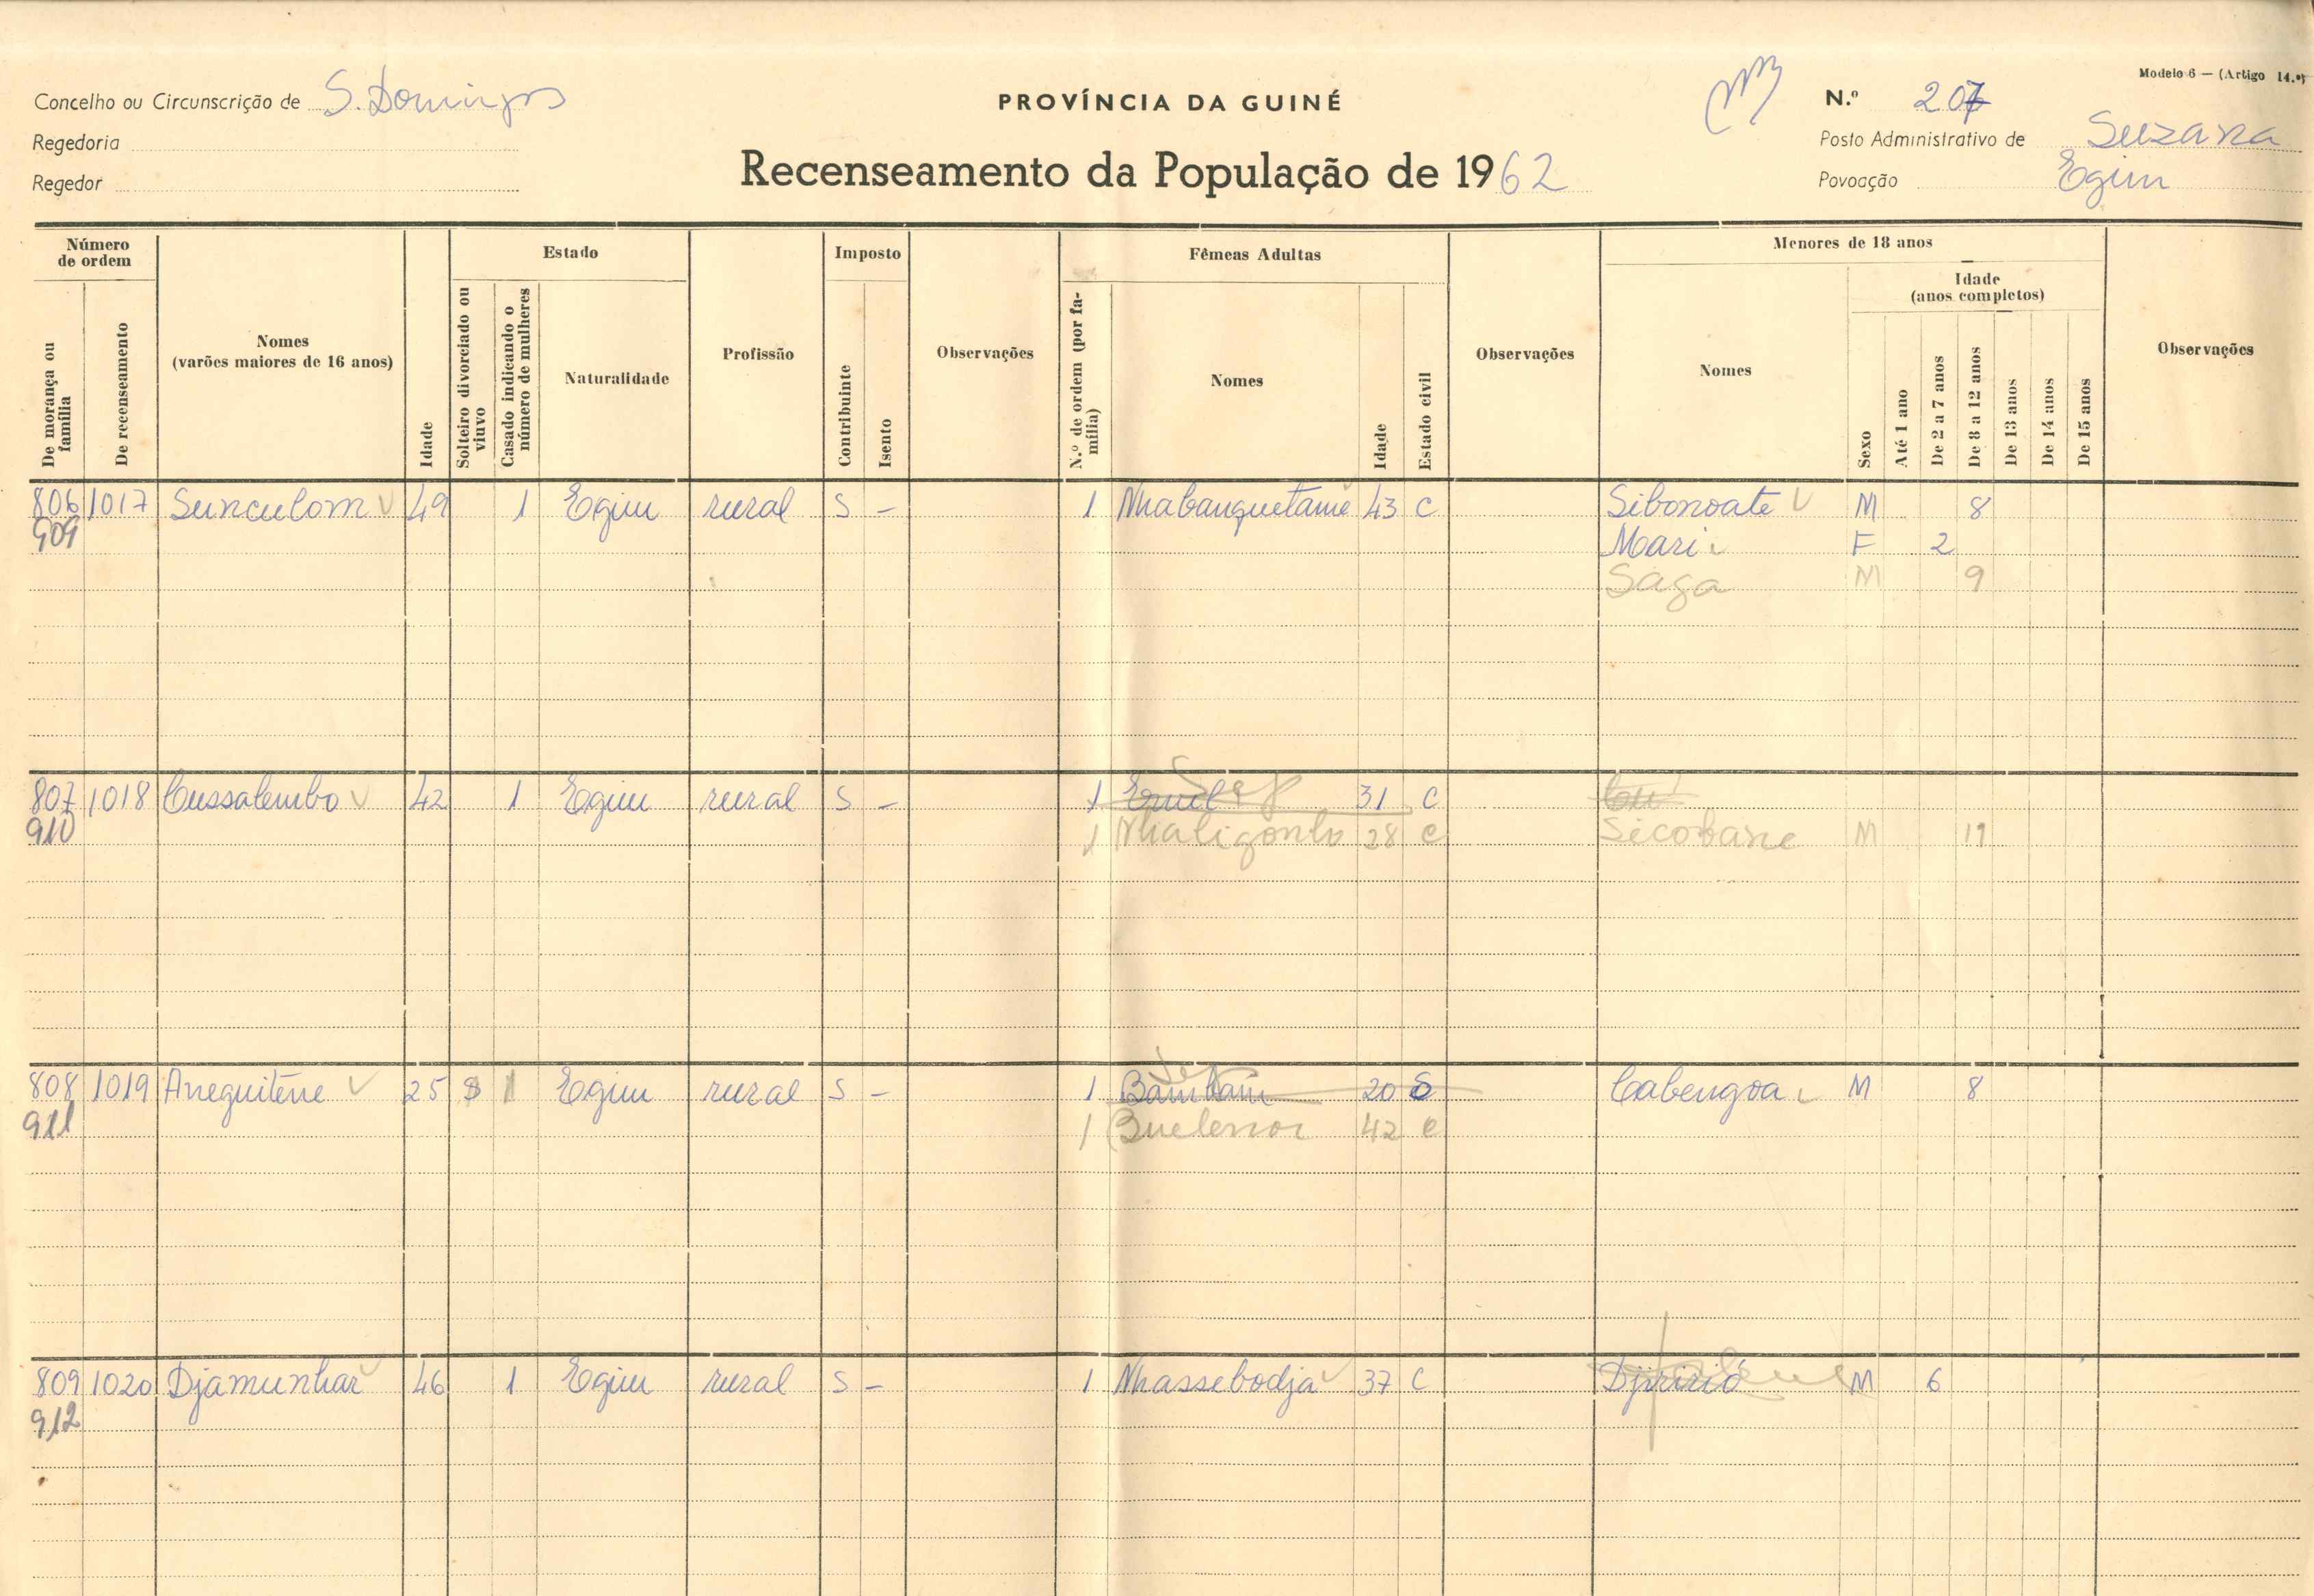 Modelo 6 — (Artigo 14.º)
Concelho ou Circunscrição de S. Domingos
PROVÍNCIA DA GUINÉ
N.º 207
Regedoria
Posto Administrativo de Suzana
Regedor
Recenseamento da População de 1962
Povoação Egim
Número de ordem
Estado
Imposto
Fêmeas Adultas
Menores de 18 anos
Idade (anos completos)
De morança ou família
De recenseamento
Nomes (varões maiores de 16 anos)
Idade
Solteiro divorciado ou viuvo
Casado indicando o número de mulheres
Naturalidade
Profissão
Contribuinte
Isento
Observações
N.º de ordem (por família)
Nomes
Idade
Estado civil
Observações
Nomes
Sexo
Até 1 ano
De 2 a 7 anos
De 8 a 12 anos
De 13 anos
De 14 anos
De 15 anos
Observações
806 1017 Sunculom 49 1 Egim rural S - 1 Nhabanquetame 43 C Sibonoate M 8
909 Mari F 2
Saga M 9
807 1018 Cussalembo 42 1 Egim rural S - 1 31 C
910 1 Nhaligonlo 28 C Sicobane M 11
808 1019 Aneguitene 25 S 1 Egim rural S - 1 Bambam 20 S Cabengoa M 8
911 1 Buelenor 42 C
809 1020 Djamunhar 46 1 Egim rural S - 1 Nhassebodja 37 C Djiririó M 6
912